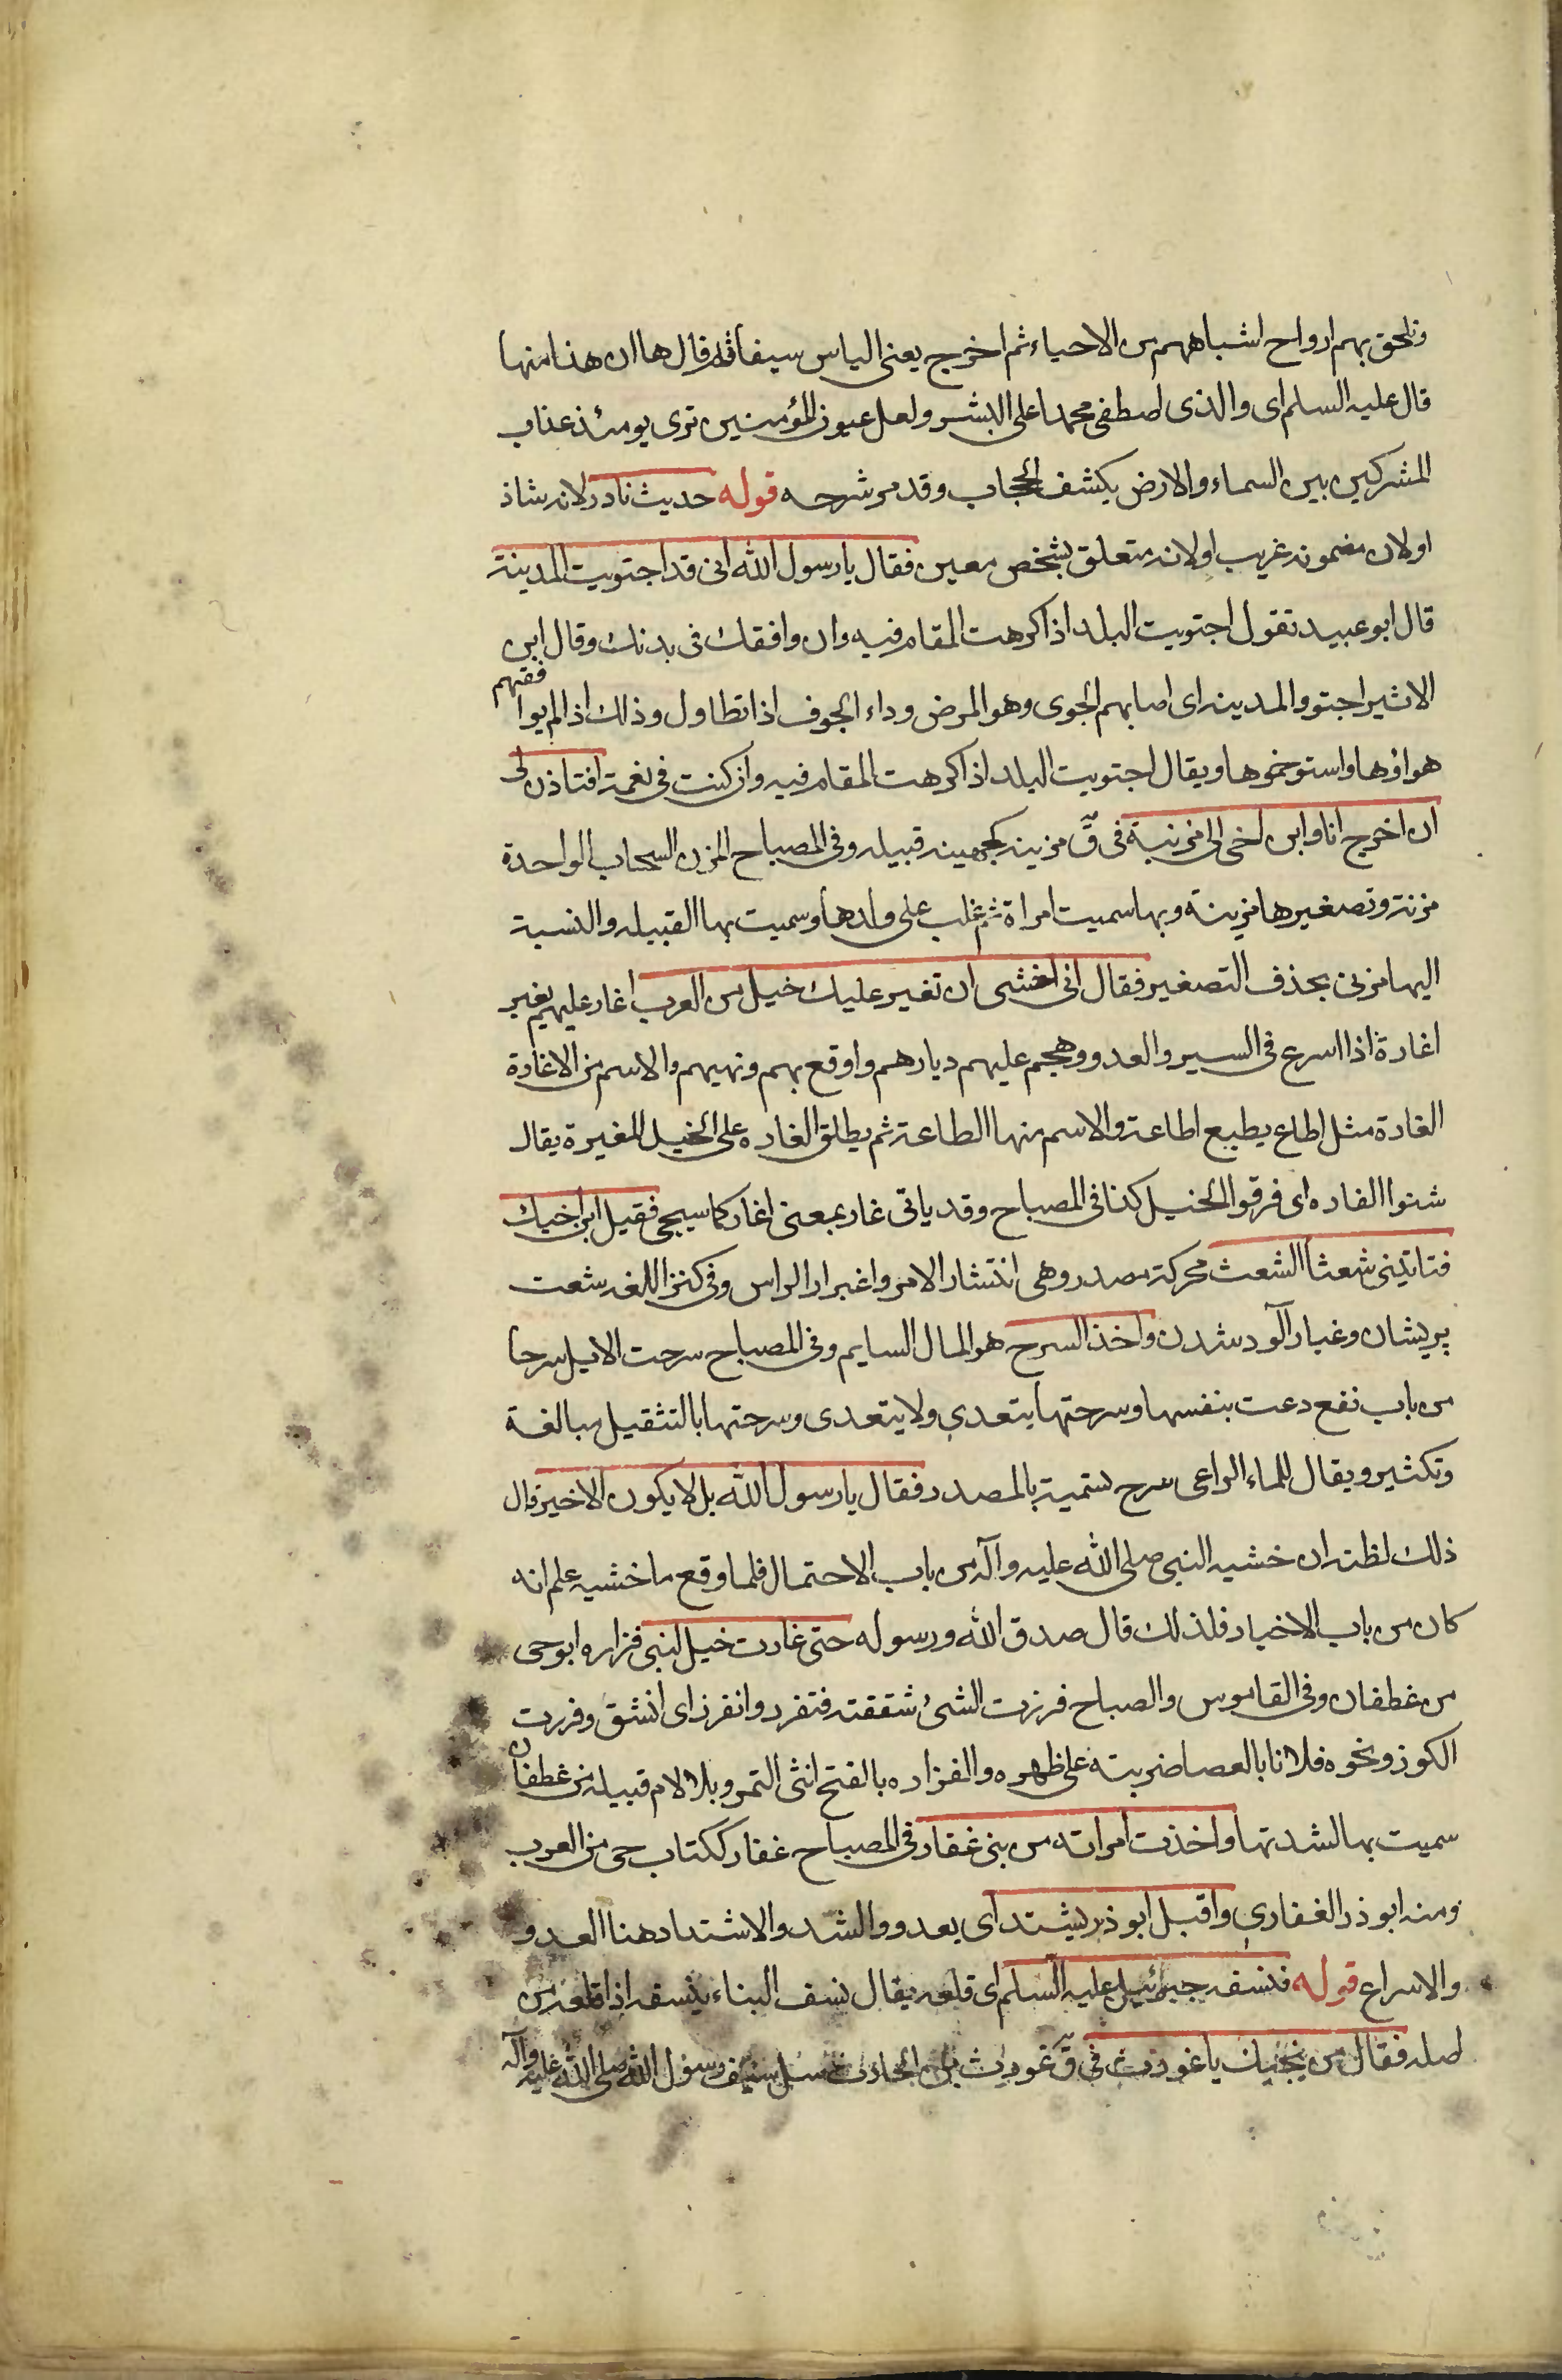 وتلحق بهم ارواح اشباههم من الاحياء ثم اخرج يعنى الياس سيفا ثم قال ها ان هذا منها
قال عليه السلم اى والذى اصطفى محمدا على البشر ولعل عيون المؤمنين ترى يومئذ عذاب
المشركين بين السماء والارض بكشف الحجاب وقد مر شرحه قوله حديث نادر لانه شاذ
او لان مضمونه غريب او لانه متعلق بشخص معين فقال يا رسول الله انى قد اجتويت المدينة
قال ابو عبيد تقول اجتويت البلد اذا كرهت المقام فيه وان وافقك فى بدنك وقال ابن
الاثير اجتووا المدينه اى اصابهم الجوى وهو المرض وداء الجوف اذا تطاول وذلك اذا لم يوافقهم
هواؤها واستوخموها ويقال اجتويت البلد اذا كرهت المقام فيه وان كنت فى نعمة افتاذن لى
ان اخرج انا وابن اخى الى مزينة فى ق مزينه كجهينه قبيله وفى المصباح المزن السحاب الواحدة
مزنة وتصغيرها مزينة وبها سميت امراة ثم غلب على ولدها وسميت بها القبيله والنسبة
اليها مزنى بحذف التصغير فقال انى اخشى ان تغير عليك خيل من العرب اغار عليهم يغير
اغارة اذا اسرع فى السير والعدو وهجم عليهم ديارهم واوقع بهم ونهبهم والاسم من الاغارة
الغارة مثل اطاع يطيع اطاعة والاسم منها الطاعة ثم يطلق الغاره على الخيل المغيرة يقال
شنوا الغاره اى فرقوا الخيل كذا فى المصباح وقد ياتى غار بمعنى اغار كما سيجى فقيل ابن اخيك
فتاتينى شعثا الشعث محركة مصدر وهى انتشار الامر واغبرار الراس وفى كنز اللغه شعث
پريشان وغبار آلود شدن واخذ السرح هو المال السايم وفى المصباح سرحت الابل سرحا
من باب نفع رعت بنفسها وسرحتها يتعدى ولا يتعدى وسرحتها بالتثقيل مبالغة
وتكثير ويقال للماء الراعى سرح تسمية بالمصدر فقال يا رسول الله بل لا يكون الا خير قال
ذلك لظنه ان خشيه النبى صلى الله عليه وآله من باب الاحتمال فلما وقع ما خشيه علم انه
كان من باب الاخبار فلذلك قال صدق الله ورسوله حتى غارت خيل لبنى فزاره ابو حى
من غطفان وفى القاموس والصباح فرزت الشىء شققته فتفرد وانفرز اى انشق وفررت
الكوز ونحوه فلانا بالعصا ضربته على ظهره والفزاره بالفتح انثى التمر وبلا لام قبيله من غطفان
سميت بها لشدتها واخذت امراته من بنى غفار فى المصباح غفار ككتاب حى من العرب
ومنه ابو ذر الغفارى واقبل ابو ذر يشتد اى يعدو والشد والاشتداد هنا العدو
والاسراع قوله فنسفه جبرئيل عليه السلم اى قلعه يقال نسف البناء ينسفه اذا قلعه من
اصله فقال من ينجيك يا غورث فى ق غورث بن الحارث سل سيف رسول الله صلى الله عليه وآله